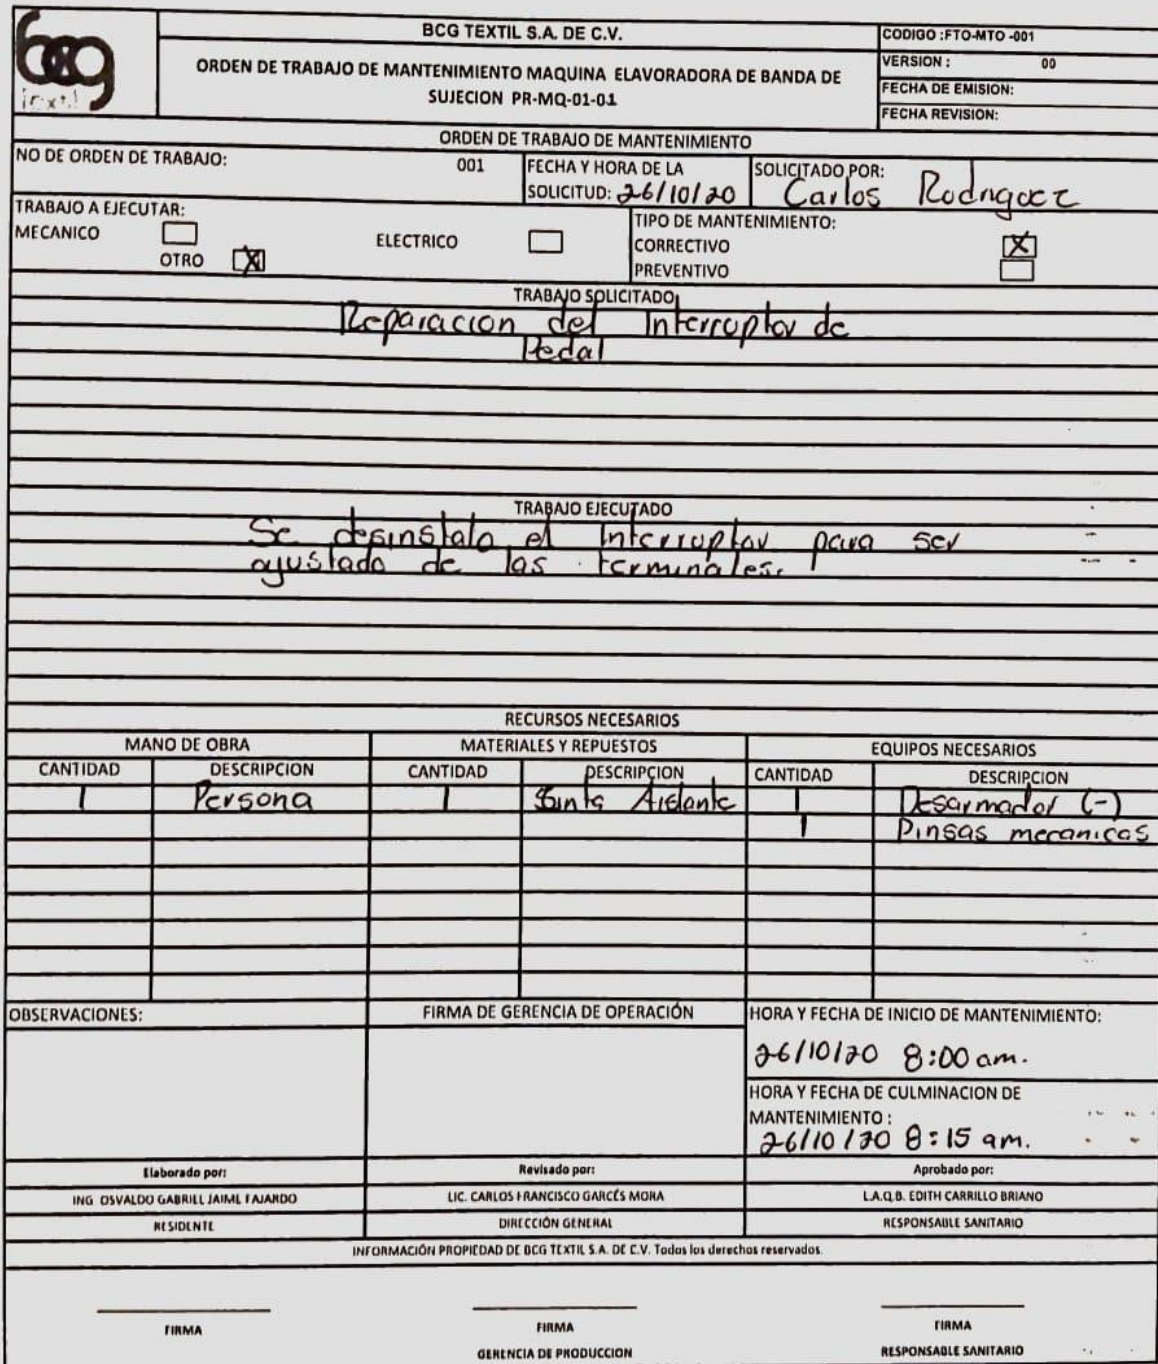 bcg
Textil
BCG TEXTIL S.A. DE C.V.
ORDEN DE TRABAJO DE MANTENIMIENTO MAQUINA ELAVORADORA DE BANDA DE
SUJECION PR-MQ-01-01
CODIGO :FTO-MTO -001
VERSION : 00
FECHA DE EMISION:
FECHA REVISION:
ORDEN DE TRABAJO DE MANTENIMIENTO
NO DE ORDEN DE TRABAJO: 001
FECHA Y HORA DE LA
SOLICITUD: 26/10/20
SOLICITADO POR:
Carlos Rodriguez
TRABAJO A EJECUTAR:
MECANICO
ELECTRICO
OTRO X
TIPO DE MANTENIMIENTO:
CORRECTIVO X
PREVENTIVO
TRABAJO SOLICITADO
Reparacion del Interruptor de
Pedal
TRABAJO EJECUTADO
Se desinstalo el Interruptor para ser
ajustado de las terminales.
RECURSOS NECESARIOS
MANO DE OBRA MATERIALES Y REPUESTOS EQUIPOS NECESARIOS
CANTIDAD DESCRIPCION CANTIDAD DESCRIPCION CANTIDAD DESCRIPCION
1 Persona 1 Aislante 1 Desarmador (-)
1 Pinsas mecanicas
OBSERVACIONES:
FIRMA DE GERENCIA DE OPERACIÓN
HORA Y FECHA DE INICIO DE MANTENIMIENTO:
26/10/20 8:00 am.
HORA Y FECHA DE CULMINACION DE
MANTENIMIENTO :
26/10/20 8:15 am.
Elaborado por: Revisado por: Aprobado por:
ING OSVALDO GABRIEL JAIME FAJARDO LIC. CARLOS FRANCISCO GARCÉS MORA L.A.Q.B. EDITH CARRILLO BRIANO
RESIDENTE DIRECCIÓN GENERAL RESPONSABLE SANITARIO
INFORMACIÓN PROPIEDAD DE BCG TEXTIL S.A. DE C.V. Todos los derechos reservados.
FIRMA FIRMA FIRMA
GERENCIA DE PRODUCCION RESPONSABLE SANITARIO